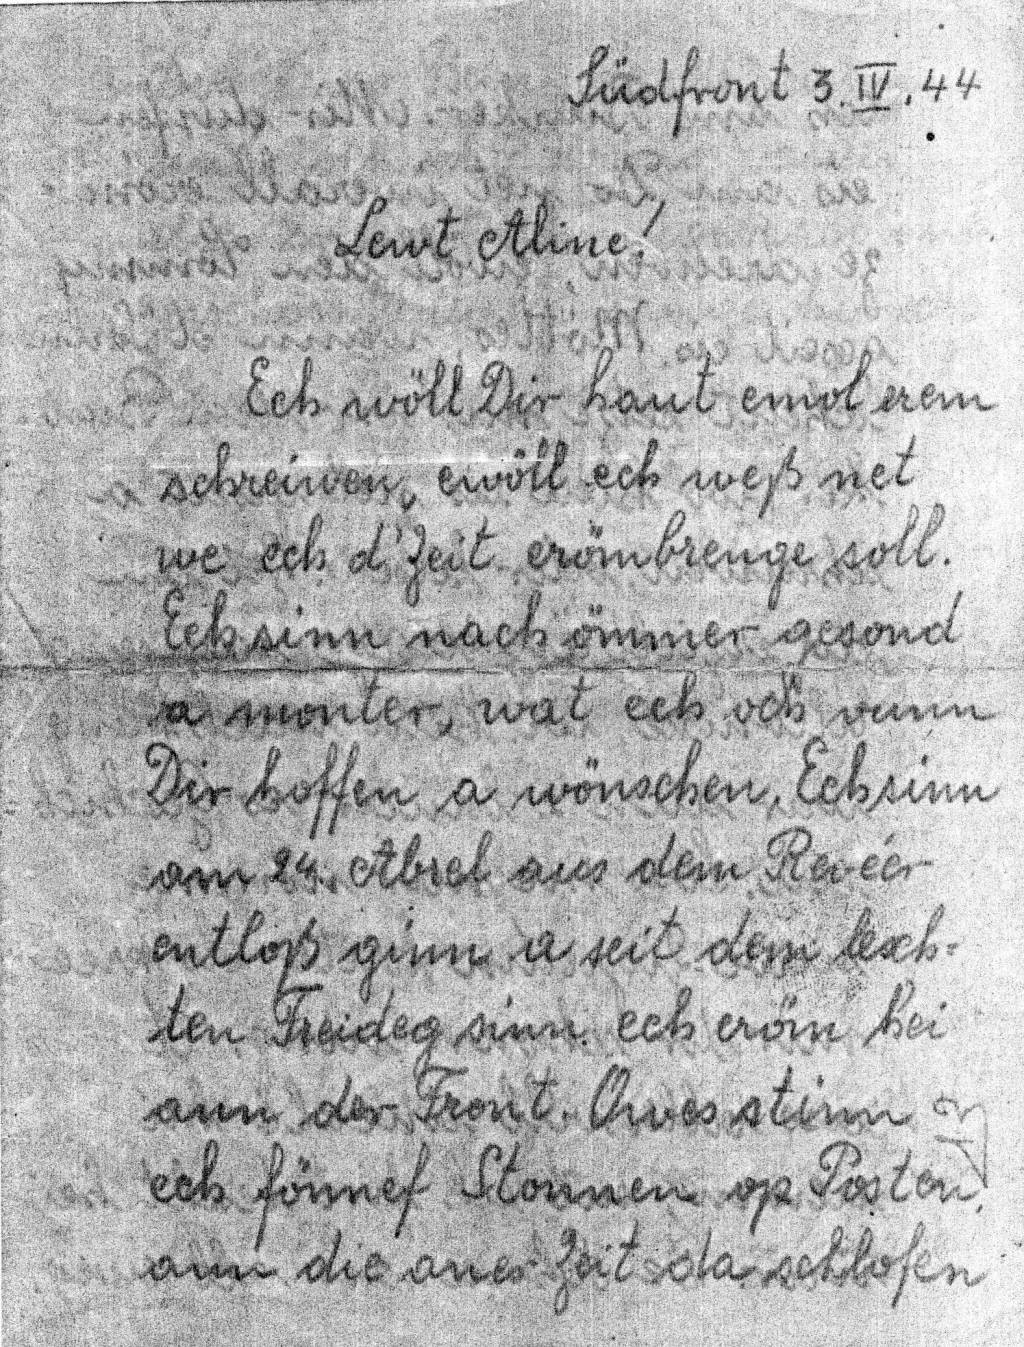 Südfront 3.IV.44
Lewt Aline!
Ech wöll Dir haut emol erem
schreiwen, ewöll ech weß net
we ech d'Zeit erömbrenge soll.
Ech sinn nach ömmer gesond
a monter, wat ech och vunn
Dir hoffen a wönschen. Ech sinn
am 24. Abrel aus dem Revéer
entloß ginn a seit dem lesch-
ten Freideg sinn ech eröm hei
ann der Front. Owes stinn
ech fönnef Stonnen op Posten,
ann die aner Zeit da schlofen